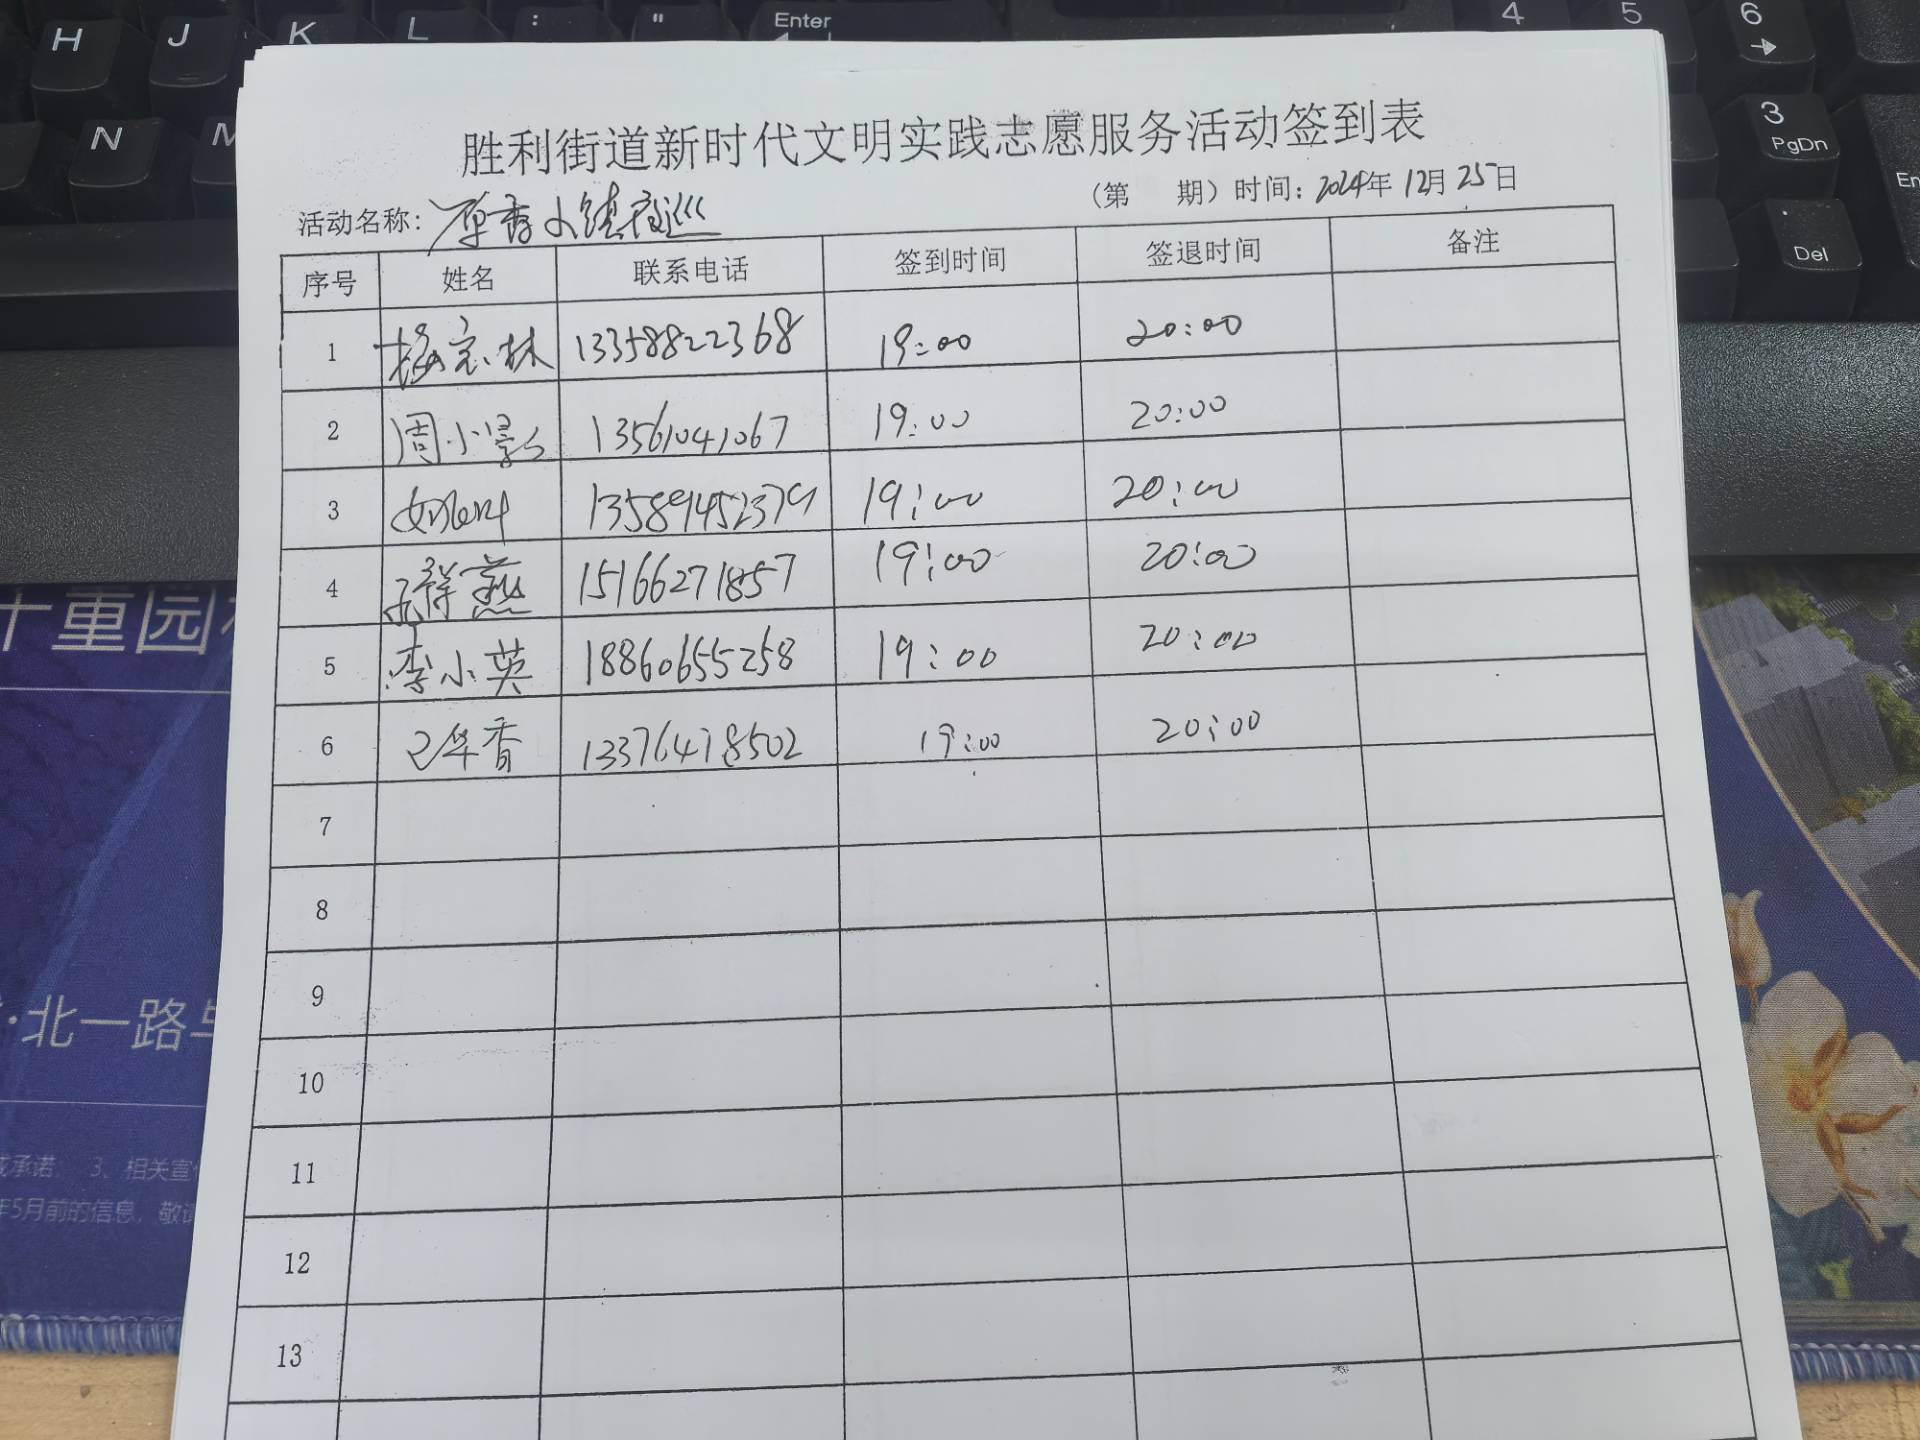 H J K L : " Enter 4 5 6
N M 3 PgDn
Del
En
胜利街道新时代文明实践志愿服务活动签到表
活动名称: 小镇夜巡 (第 期) 时间: 2024年 12月 25日
序号 姓名 联系电话 签到时间 签退时间 备注
1 杨宗林 13358822368 19:00 20:00
2 周小影 13561041067 19:00 20:00
3 13589452379 19:00 20:00
4 燕 15166271857 19:00 20:00
5 李小英 18860655258 19:00 20:00
6 华香 13376478502 19:00 20:00
7
8
9
10
11
12
13
十重园
·北一路与
承诺: 3、相关宣
年5月前的信息, 敬请